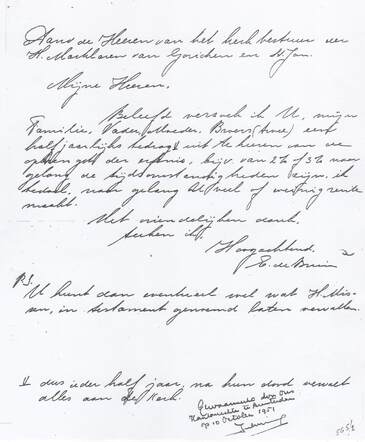 Aans de Heeren van het kerkbestuur der
H. Martelaren van Gorichem en St. Jan.
Mijne Heeren.
Beleefd verzoek ik U, mijn
Familie, Vader, Moeder, Broers (twee) een
halfjaarlijks bedrag uit te keeren van de
opbrengst der erfenis, bijv. van 2% of 3% naar
gelang de tijdsomstandigheden zijn. ik
bedoel, naar gelang het veel of weinig rente
maakt.
Met vriendelijken dank.
teeken ik,
Hoogachtend.
E. de Bruin
P.S.
U kunt dan eventueel wel wat H. Mis-
sen, in testament genoemd laten vervallen.
II dus ieder half jaar, na hun dood vervalt
alles aan de Kerk.
Gewaarmerkt door ons
te Amsterdam
op 10 October 1951